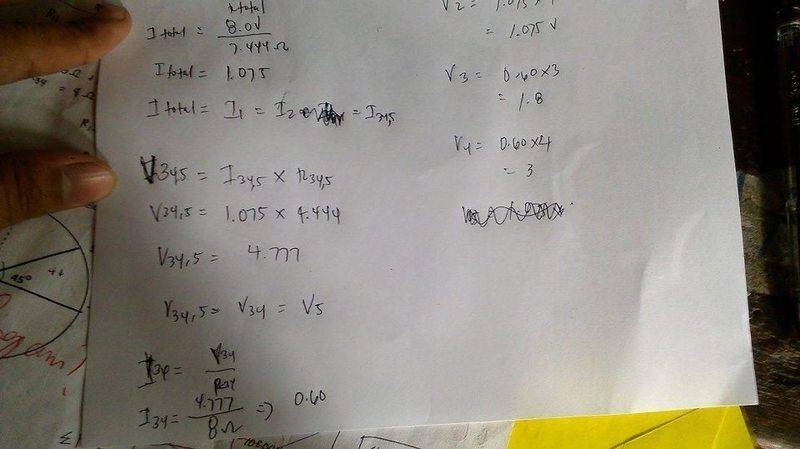 I total = 8.0V
7.444 Ω
I total = 1.075
I total = I1 = I2 = I34,5
V34,5 = I34,5 x R34,5
V34,5 = 1.075 x 4.444
V34,5 = 4.777
V34,5 = V34 = V5
I34 = V34
R34
I34 = 4.777 => 0.60
8Ω
= 1.075 V
V3 = 0.60x3
= 1.8
V4 = 0.60x4
= 3
45°